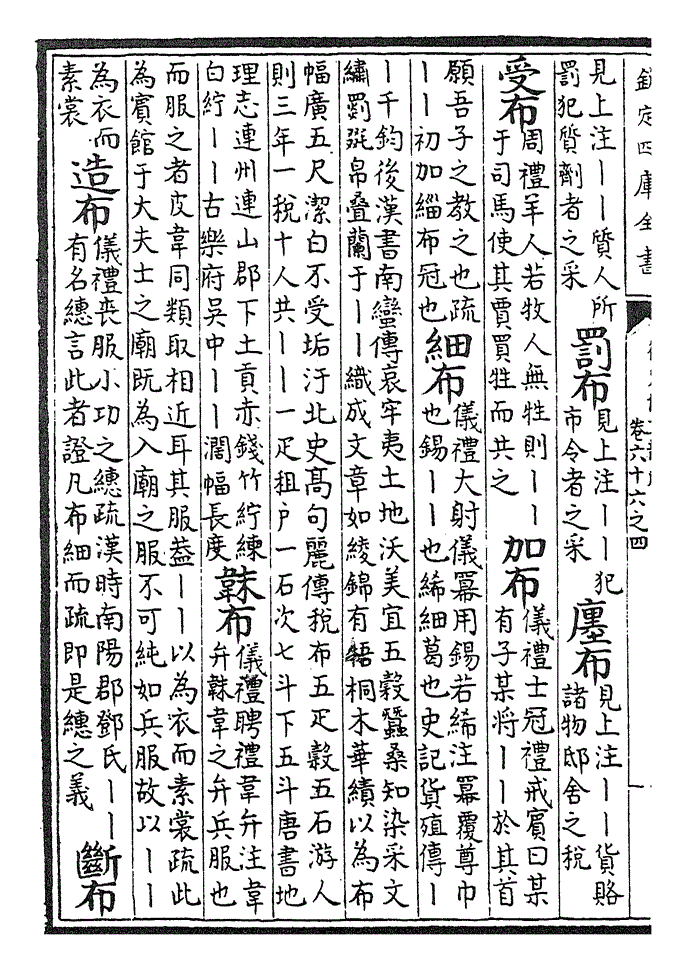 欽定四庫全書
卷六十六之四
見上注丨丨質人所
罰犯質劑者之采
罰布
見上注丨丨犯
市令者之采
廛布
見上注丨丨貨賂
諸物邸舍之稅
受布
周禮羊人若牧人無牲則丨丨
于司馬使其賈買牲而共之
加布
儀禮士冠禮戒賓曰某
有子某將丨丨於其首
願吾子之教之也疏
丨丨初加緇布冠也
細布
儀禮大射儀冪用錫若絺注冪覆尊巾
也錫丨丨也絺細葛也史記貨殖傳丨
丨千鈞後漢書南蠻傳哀牢夷土地沃美宜五穀蠶桑知染采文
繡罽毲帛疊蘭于丨丨織成文章如綾錦有梧桐木華績以為布
幅廣五尺潔白不受垢汙北史髙句麗傳稅布五疋穀五石游人
則三年一稅十人共丨丨一疋租户一石次七斗下五斗唐書地
理志連州連山郡下土貢赤錢竹紵練
白紵丨丨古樂府吳中丨丨濶幅長度
韎布
儀禮聘禮韋弁注韋
弁韎韋之弁兵服也
而服之者皮韋同類取相近耳其服葢丨丨以為衣而素裳疏此
為賓館于大夫士之廟既為入廟之服不可純如兵服故以丨丨
為衣而
素裳
造布
儀禮喪服小功之繐疏漢時南陽郡鄧氏丨丨
有名繐言此者證凡布細而疏即是繐之義
斷布